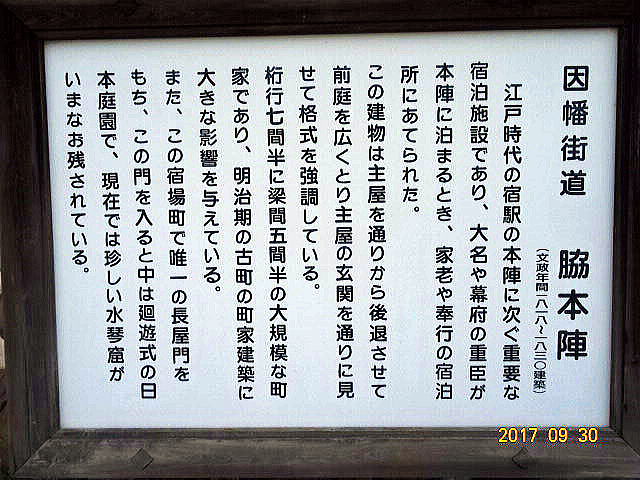 因幡街道 脇本陣
(文政年間一八一八～一八三〇建築)
江戸時代の宿駅の本陣に次ぐ重要な
宿泊施設であり、大名や幕府の重臣が
本陣に泊まるとき、家老や奉行の宿泊
所にあてられた。
この建物は主屋を通りから後退させて
前庭を広くとり主屋の玄関を通りに見
せて格式を強調している。
桁行七間半に梁間五間半の大規模な町
家であり、明治期の古町の町家建築に
大きな影響を与えている。
また、この宿場町で唯一の長屋門を
もち、この門を入ると中は廻遊式の日
本庭園で、現在では珍しい水琴窟が
いまなお残されている。
2017 09 30